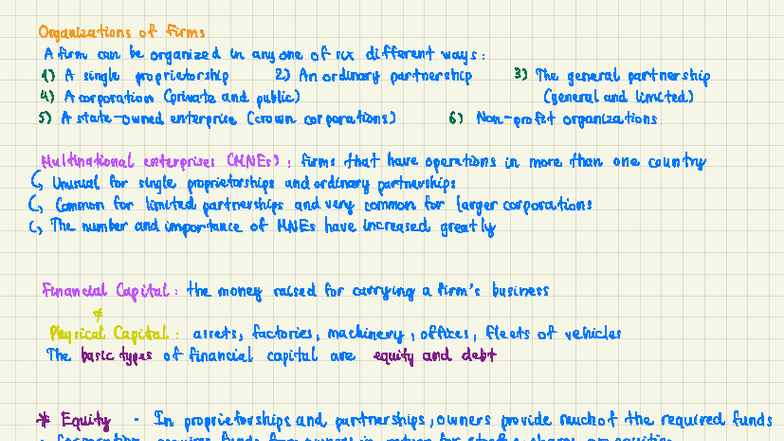 Organizations of firms
A firm can be organized in any one of six different ways:
1) A single proprietorship 2) An ordinary partnership 3) The general partnership
4) A corporation (private and public) (general and limited)
5) A state-owned enterprise (crown corporations) 6) Non-profit organizations
Multinational enterprises (MNEs): firms that have operations in more than one country
↳ Unusual for single proprietorships and ordinary partnerships
↳ Common for limited partnerships and very common for larger corporations
↳ The number and importance of MNEs have increased greatly
Financial Capital: the money raised for carrying a firm's business
≠
Physical Capital: assets, factories, machinery, offices, fleets of vehicles
The basic types of financial capital are equity and debt
* Equity - In proprietorships and partnerships, owners provide much of the required funds